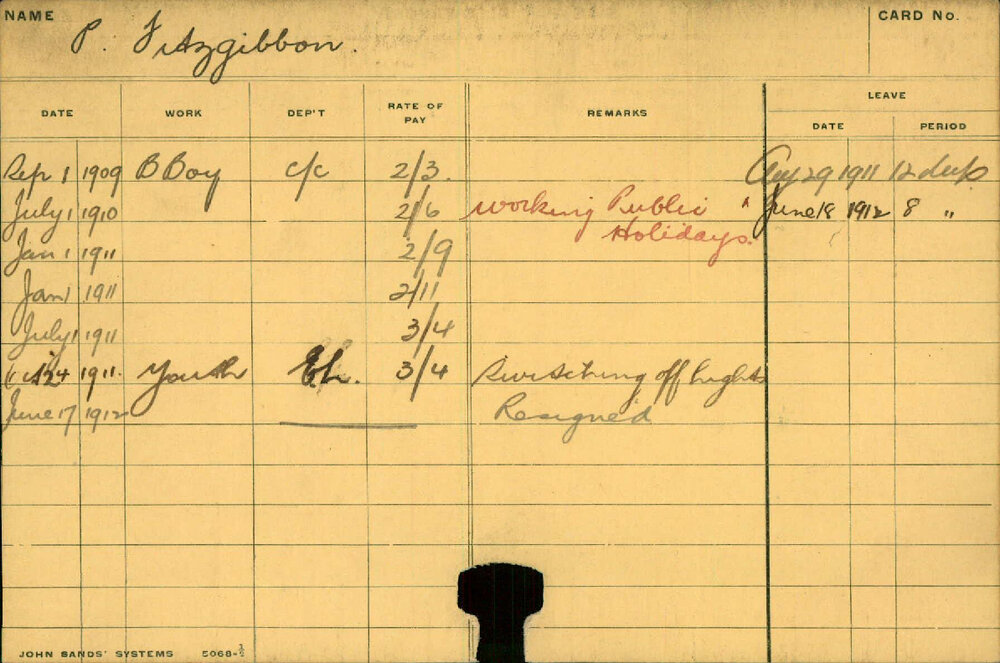 NAME P. Fitzgibbon. CARD No.
LEAVE
DATE WORK DEP'T RATE OF PAY REMARKS DATE PERIOD
Sep 1 1909 B Boy c/c 2/3. Aug 29 1911 12 days
July 1 1910 2/6 Working Public " June 18 1912 8 "
Holidays.
Jan 1 1911 2/9
Jan 1 1911 2/11
July 1 1911 3/4
24 1911. Youth 3/4 Switching off lights
June 17 1912 Resigned
JOHN SANDS' SYSTEMS 5068-½